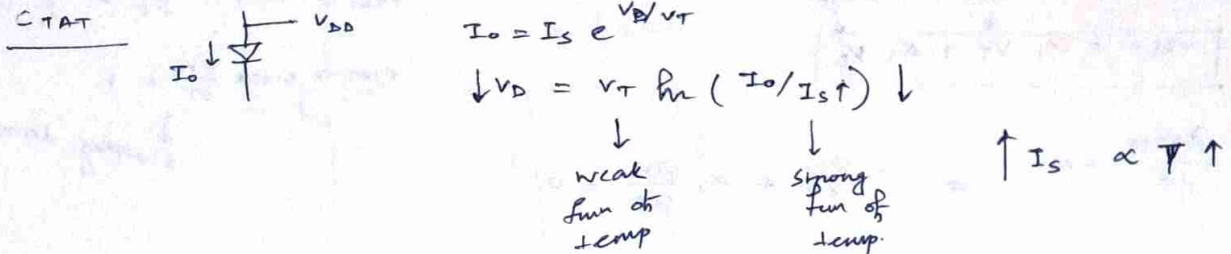 CTAT
V_DD
I₀ ↓
I₀ = I_S e^{V_D/V_T}
↓ V_D = V_T ln ( I₀/I_S ↑ ) ↓
↓ ↓
weak fun of temp
strong fun of temp.
↑ I_S ∝ T ↑